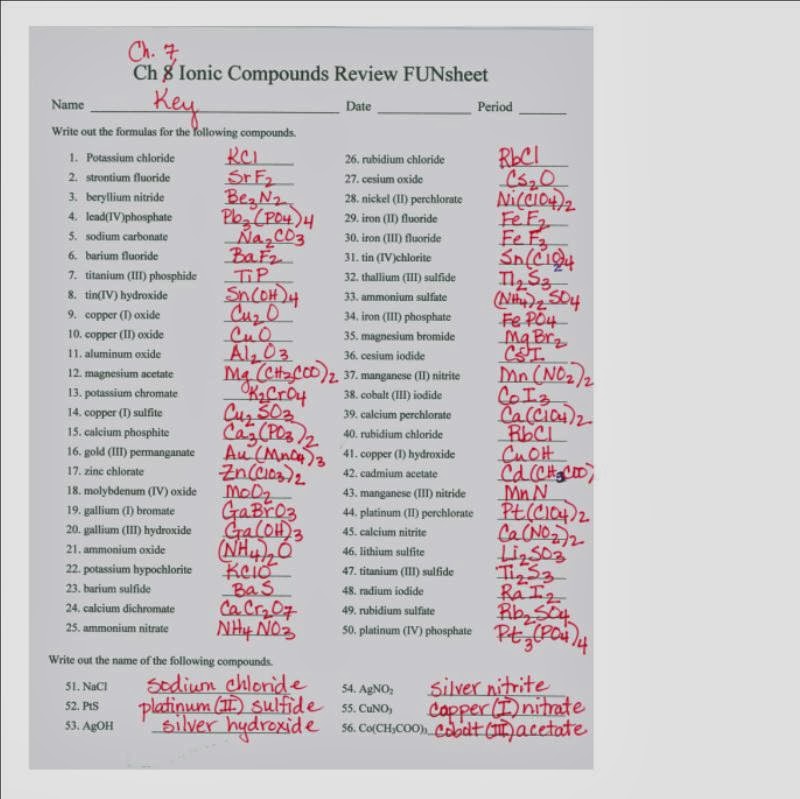 Ch. 7
Ch 8 Ionic Compounds Review FUNsheet
Name Key Date Period
Write out the formulas for the following compounds.
1. Potassium chloride KCl
2. strontium fluoride SrF₂
3. beryllium nitride Be₃N₂
4. lead(IV)phosphate Pb₃(PO₄)₄
5. sodium carbonate Na₂CO₃
6. barium fluoride BaF₂
7. titanium (III) phosphide TiP
8. tin(IV) hydroxide Sn(OH)₄
9. copper (I) oxide Cu₂O
10. copper (II) oxide CuO
11. aluminum oxide Al₂O₃
12. magnesium acetate Mg(CH₃COO)₂
13. potassium chromate K₂CrO₄
14. copper (I) sulfite Cu₂SO₃
15. calcium phosphite Ca₃(PO₃)₂
16. gold (III) permanganate Au(MnO₄)₃
17. zinc chlorate Zn(ClO₃)₂
18. molybdenum (IV) oxide MoO₂
19. gallium (I) bromate GaBrO₃
20. gallium (III) hydroxide Ga(OH)₃
21. ammonium oxide (NH₄)₂O
22. potassium hypochlorite KClO
23. barium sulfide BaS
24. calcium dichromate CaCr₂O₇
25. ammonium nitrate NH₄NO₃
26. rubidium chloride RbCl
27. cesium oxide Cs₂O
28. nickel (II) perchlorate Ni(ClO₄)₂
29. iron (II) fluoride FeF₂
30. iron (III) fluoride FeF₃
31. tin (IV)chlorite Sn(ClO₂)₄
32. thallium (III) sulfide Tl₂S₃
33. ammonium sulfate (NH₄)₂SO₄
34. iron (III) phosphate FePO₄
35. magnesium bromide MgBr₂
36. cesium iodide CsI
37. manganese (II) nitrite Mn(NO₂)₂
38. cobalt (III) iodide CoI₃
39. calcium perchlorate Ca(ClO₄)₂
40. rubidium chloride RbCl
41. copper (I) hydroxide CuOH
42. cadmium acetate Cd(CH₃COO)
43. manganese (III) nitride MnN
44. platinum (II) perchlorate Pt(ClO₄)₂
45. calcium nitrite Ca(NO₂)₂
46. lithium sulfite Li₂SO₃
47. titanium (III) sulfide Ti₂S₃
48. radium iodide RaI₂
49. rubidium sulfate Rb₂SO₄
50. platinum (IV) phosphate Pt₃(PO₄)₄
Write out the name of the following compounds.
51. NaCl sodium chloride
52. PtS platinum (II) sulfide
53. AgOH silver hydroxide
54. AgNO₂ silver nitrite
55. CuNO₃ copper (I) nitrate
56. Co(CH₃COO)₃ cobalt (III) acetate